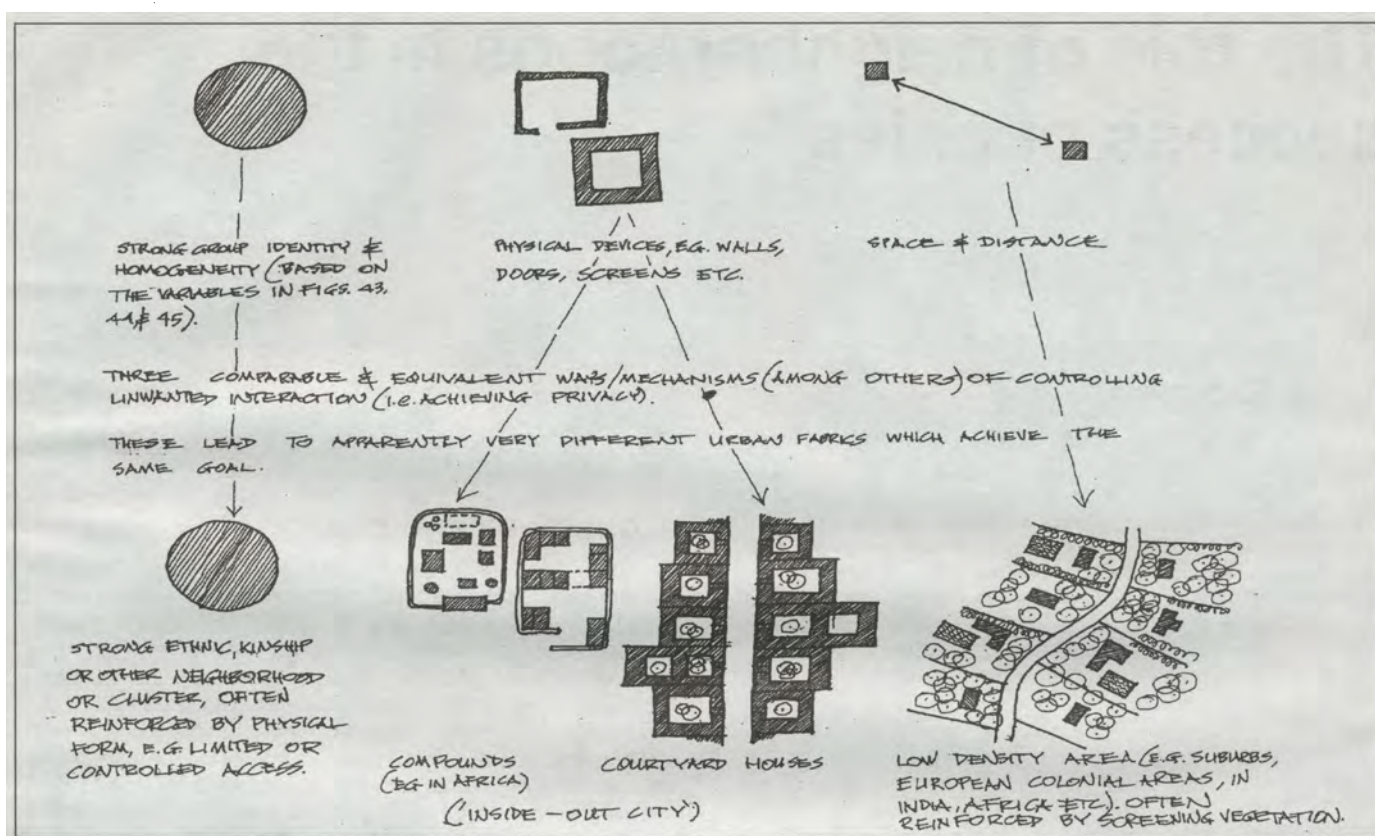 STRONG GROUP IDENTITY &
HOMOGENEITY (BASED ON
THE VARIABLES IN FIGS. 43,
44, & 45).
PHYSICAL DEVICES, EG. WALLS,
DOORS, SCREENS ETC.
SPACE & DISTANCE
THREE COMPARABLE & EQUIVALENT WAYS/MECHANISMS (AMONG OTHERS) OF CONTROLLING
UNWANTED INTERACTION (i.e. ACHIEVING PRIVACY).
THESE LEAD TO APPARENTLY VERY DIFFERENT URBAN FABRICS WHICH ACHIEVE THE
SAME GOAL.
STRONG ETHNIC, KINSHIP
OR OTHER NEIGHBORHOOD
OR CLUSTER, OFTEN
REINFORCED BY PHYSICAL
FORM, E.G LIMITED OR
CONTROLLED ACCESS.
COMPOUNDS
(EG IN AFRICA)
COURTYARD HOUSES
('INSIDE-OUT CITY')
LOW DENSITY AREA (E.G. SUBURBS,
EUROPEAN COLONIAL AREAS, IN
INDIA, AFRICA ETC). OFTEN
REINFORCED BY SCREENING VEGETATION.